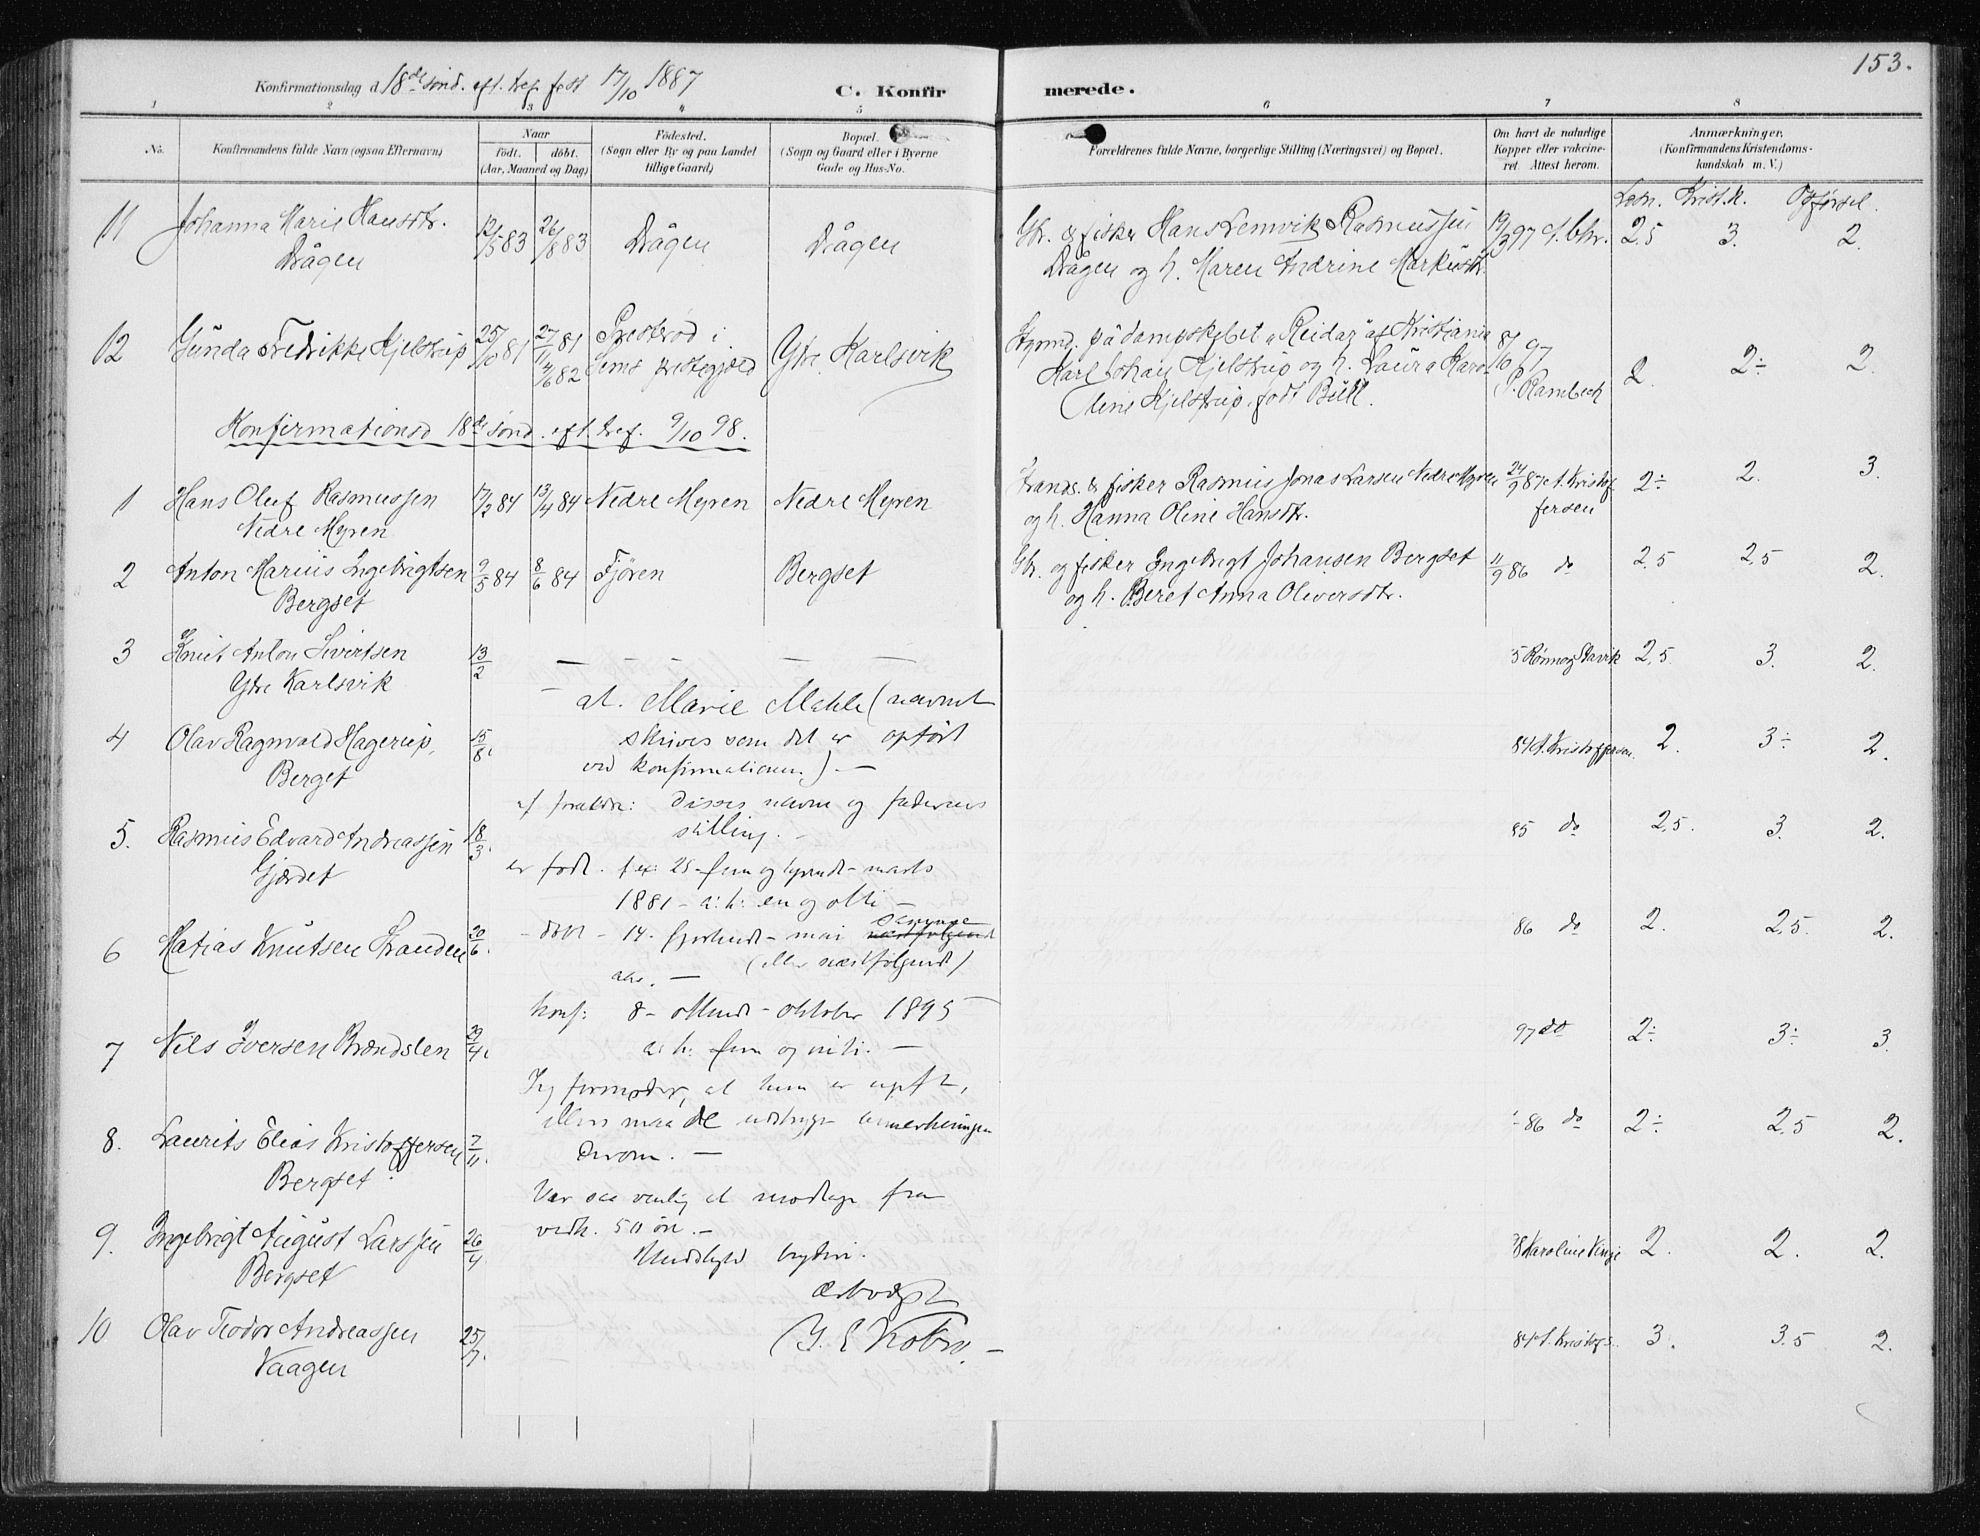 153.
Konfirmationsdag d. 18de sønd. eft. tref. fest 17/10 1887
C. Konfirmerede.
1 2 3 4 5 6 7 8
No.
Konfirmandens fulde Navn (ogsaa Efternavn)
Naar
født. døbt.
(Aar, Maaned og Dag)
Fødested.
(Sogn eller By og paa Landet
tillige Gaard)
Bopæl.
(Sogn og Gaard eller i Byerne
Gade og Hus-No.
Forældrenes fulde Navne, borgerlige Stilling (Næringsvei) og Bopæl.
Om havt de naturlige
Kopper eller vakcine-
ret. Attest herom.
Anmærkninger.
(Konfirmandens Kristendoms-
kundskab m. V.)
Krist.k. Opførsel.
11 Johanna Marie Hansdtr. 12/5 83 26/8 83 Drågen Drågen Gbr. & fisker Hans Lemvik Rasmussen 2,5 3. 2.
Drågen
Drågen og h. Maren Andrine Markusdtr.
12 Gunda Fredrikke Kjelstrup 25/10 81 27/11 81 Presterød i Ytre Karlsvik
Sems prestegjeld
Styrmd. på dampskibet "Reidar" af Kristiania 8/10 97 2. 2÷ 2.
Karl Johan Kjelstrup og h. Laura Karo-
line Kjelstrup, født Bull.
P. Rambech
Konfirmationsd 18de sønd. eft. tref. 9/10 98.
1 Hans Oluf Rasmussen 17/2 84 13/4 84 Nedre Myren Nedre Myren
Nedre Myren
Strands. & fisker Rasmus Jonas Larsen Nedre Myren 24/9 87 A. Kristof 2÷ 2. 3.
og h. Hanna Oline Hansdtr. fersen
2 Anton Marius Ingebrigtsen 9/5 84 8/6 84 Fjören Bergset
Bergset
Gbr. og fisker Ingebrigt Johansen Bergset 11/9 86 do 2,5 2,5 2.
og h. Beret Anna Oliversdtr.
3 Knut Anton Sivertsen 13/2 5 Rønnog Stavik 2,5. 3. 2.
Ytre Karlsvik
4 Olav Ragnvald Hagerup, 15/8. 84 A. Kristoffersen. 2. 3÷ 2.
Berget
5. Rasmus Edvard Andreassen 18/3. 85 do 2,5. 3. 2.
Gjerdet
6 Matias Knutsen Stranden 20/6. 86 do 2. 2,5. 2.
7 Nils Iversen Brandslen 29/4. 97 do 2÷ 3÷ 3.
8. Laurits Elias Kristoffersen 7/11. 86 do 2÷ 2,5 2.
Bergset.
9. Ingebrigt August Larssen 26/4 Karoline Vinje 2. 2. 2.
Bergset
10 Olav Teodor Andreassen 25/7. 84 A. Kristofs. 3. 3.5 2.
Vaagen
at. Marie Mahle (navnet
skrives som det er opført
ved konfirmationen.) —
af forældre: Disses navne og faderens
stilling. —
er født. 25 - fem og tyvende - marts
1881 - a: h: en og otti —
- døbt - 14. fjortende - mai samme
næstfølgende
aar. — (eller næstfølgende)
konf: 8 - ottende - oktober 1895 —
a: h: fem og niti. —
Jeg formoder, at hun er ugift,
ellers maa De udtrykt anmerkningen
derom. —
Vær saa venlig at modtage fra
vedk. 50 øre. —
ærbødigst
J. E. Kobro. —